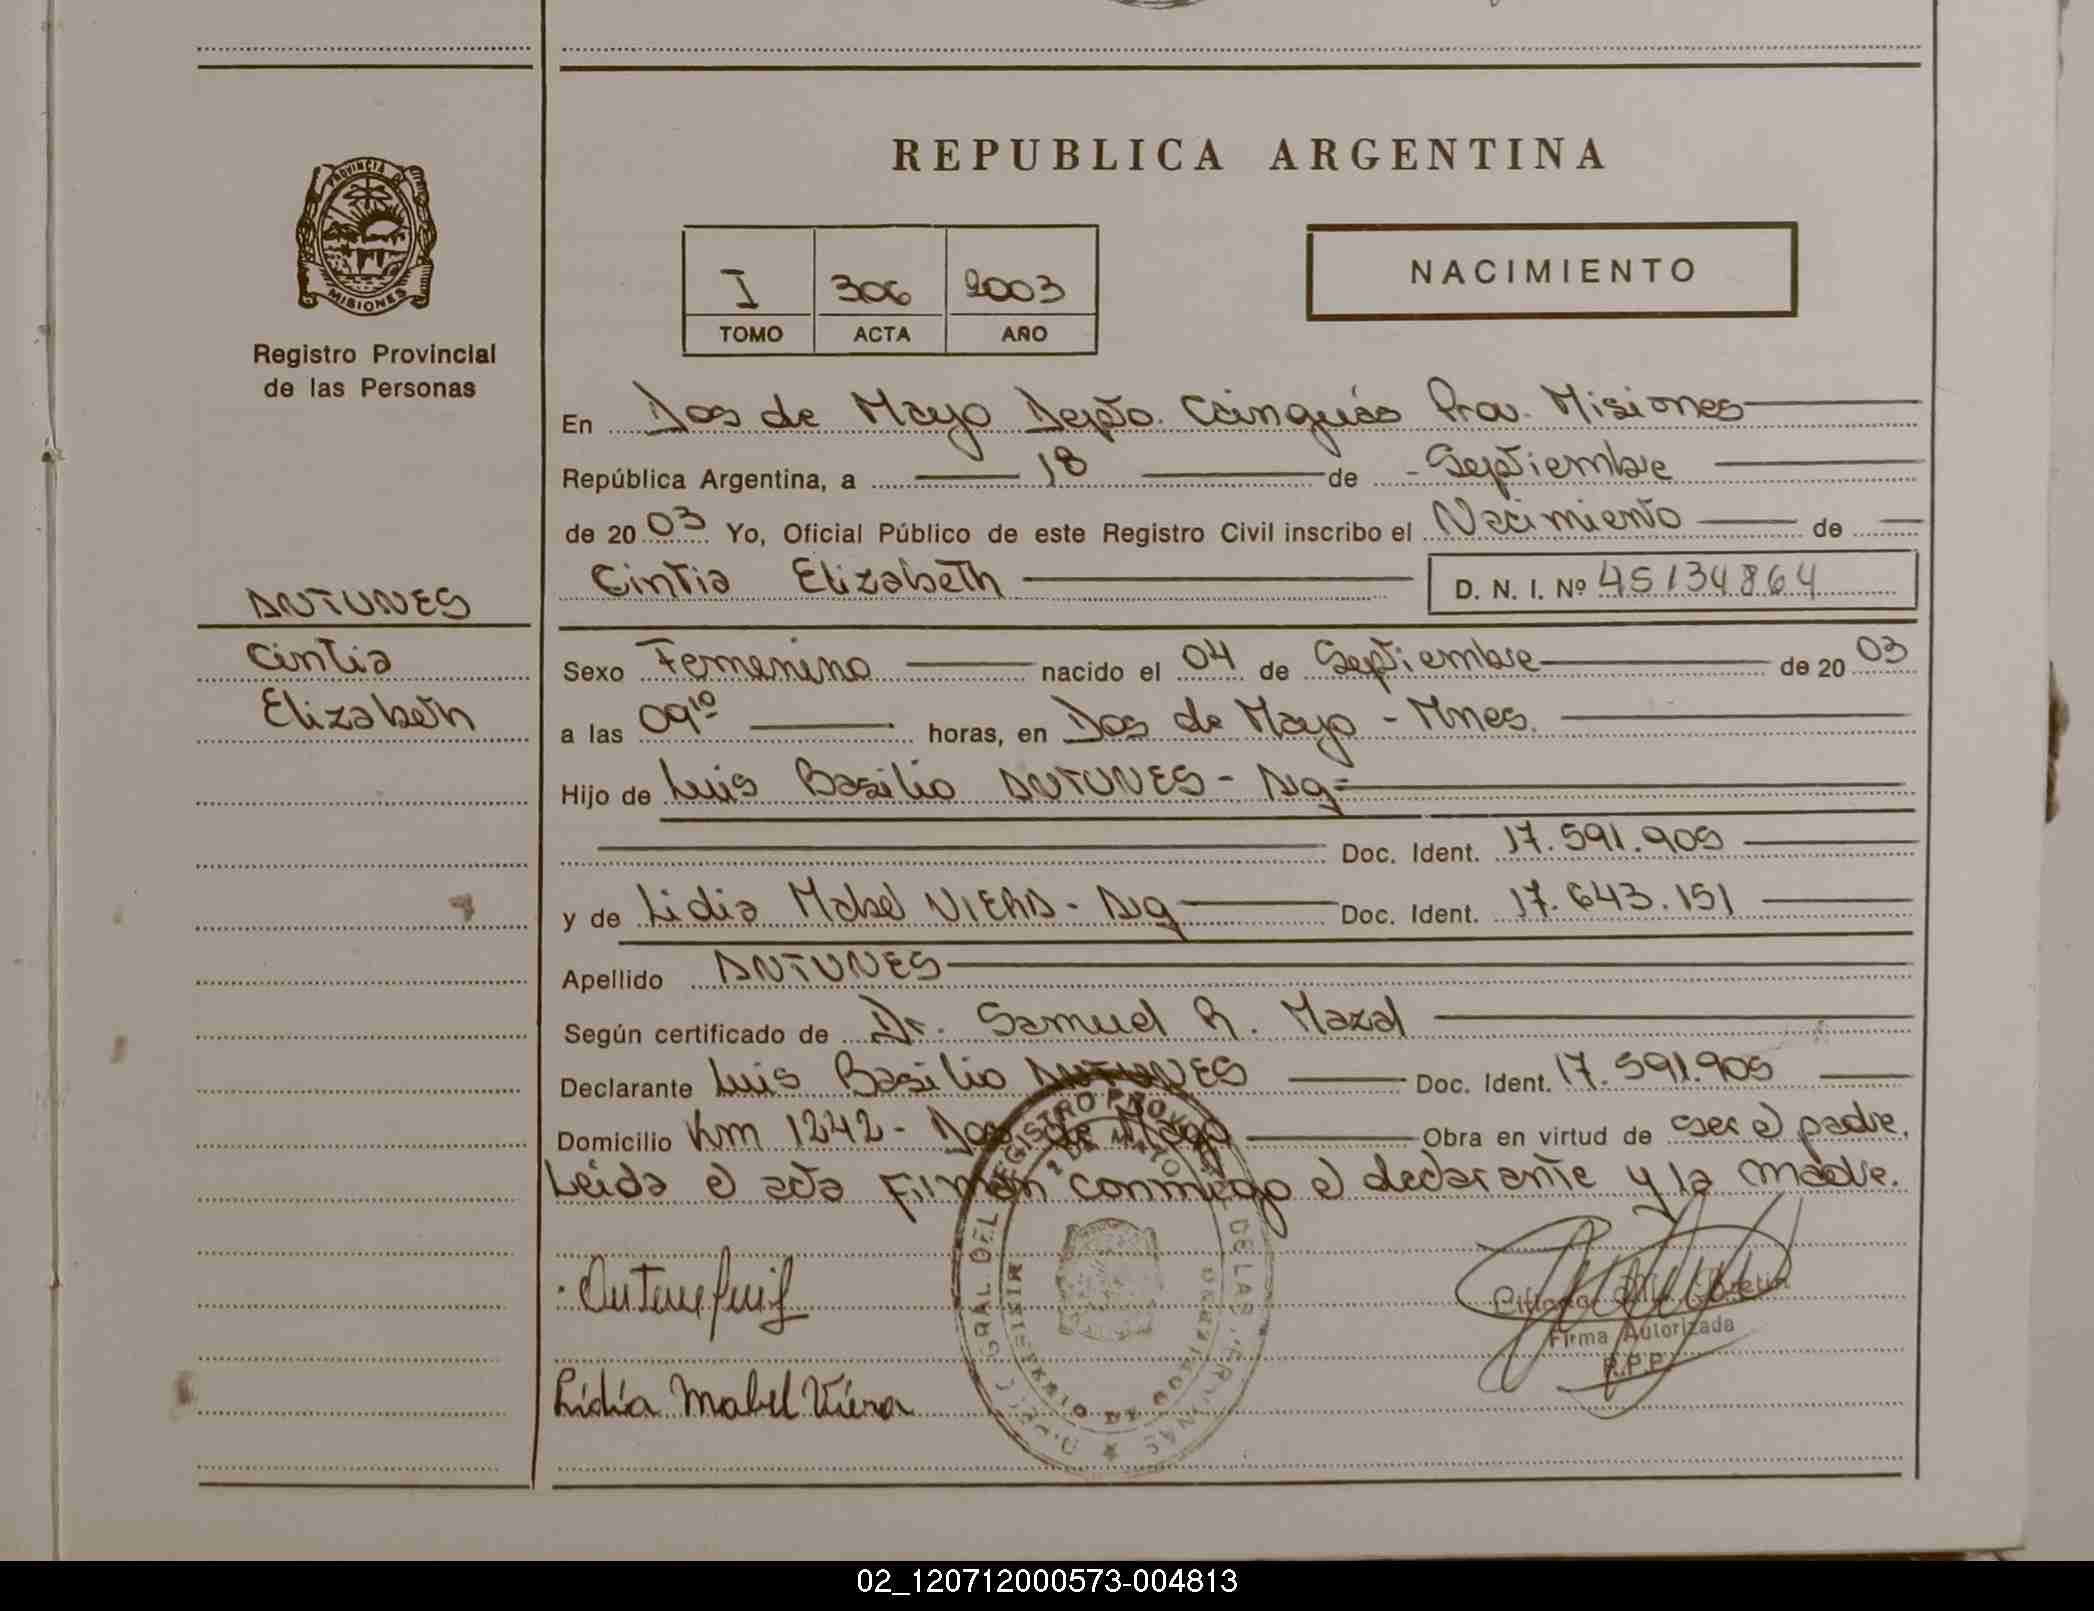 REPUBLICA ARGENTINA
PROVINCIA DE
MISIONES
Registro Provincial
de las Personas
I 306 2003
TOMO ACTA AÑO
NACIMIENTO
En Dos de Mayo Depto. Cainguás Prov. Misiones
República Argentina, a 18 de Septiembre
de 2003 Yo, Oficial Público de este Registro Civil inscribo el Nacimiento de
Cintia Elizabeth D. N. I. Nº 45134864
ANTUNES
Cintia
Elizabeth
Sexo Femenino nacido el 04 de Septiembre de 2003
a las 09¹⁰ horas, en Dos de Mayo - Mnes.
Hijo de Luis Basilio ANTUNES - Arg
Doc. Ident. 17.591.905
y de Lidia Mabel VIERA - Arg Doc. Ident. 17.643.151
Apellido ANTUNES
Según certificado de Dr. Samuel R. Mazal
Declarante Luis Basilio ANTUNES Doc. Ident. 17.591.905
Domicilio Km 1242 - Dos de Mayo Obra en virtud de ser el padre.
Leida el acta Firman conmigo el declarante y la madre.
Firma Autorizada
R.P.P.
Lidia Mabel Viera
02_120712000573-004813